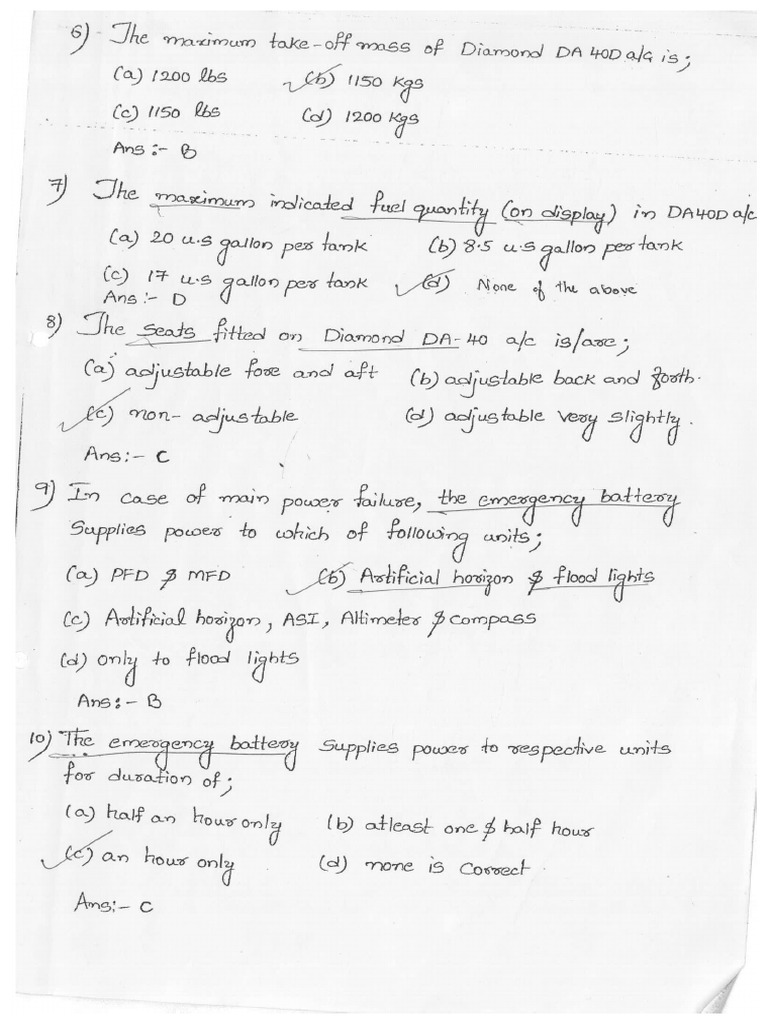 6) The maximum take-off mass of Diamond DA 40D a/c is;
(a) 1200 lbs (b) 1150 Kgs
(c) 1150 lbs (d) 1200 Kgs
Ans :- B
7) The maximum indicated fuel quantity (on display) in DA40D a/c
(a) 20 u.s gallon per tank (b) 8.5 u.s gallon per tank
(c) 17 u.s gallon per tank (d) None of the above
Ans :- D
8) The seats fitted on Diamond DA-40 a/c is/are;
(a) adjustable fore and aft (b) adjustable back and forth.
(c) non-adjustable (d) adjustable very slightly.
Ans:- C
9) In case of main power failure, the emergency battery
Supplies power to which of following units;
(a) PFD & MFD (b) Artificial horizon & flood lights
(c) Artificial horizon, ASI, Altimeter & compass
(d) only to flood lights
Ans:- B
10) The emergency battery supplies power to respective units
for duration of;
(a) half an hour only (b) atleast one & half hour
(c) an hour only (d) none is correct.
Ans:- C